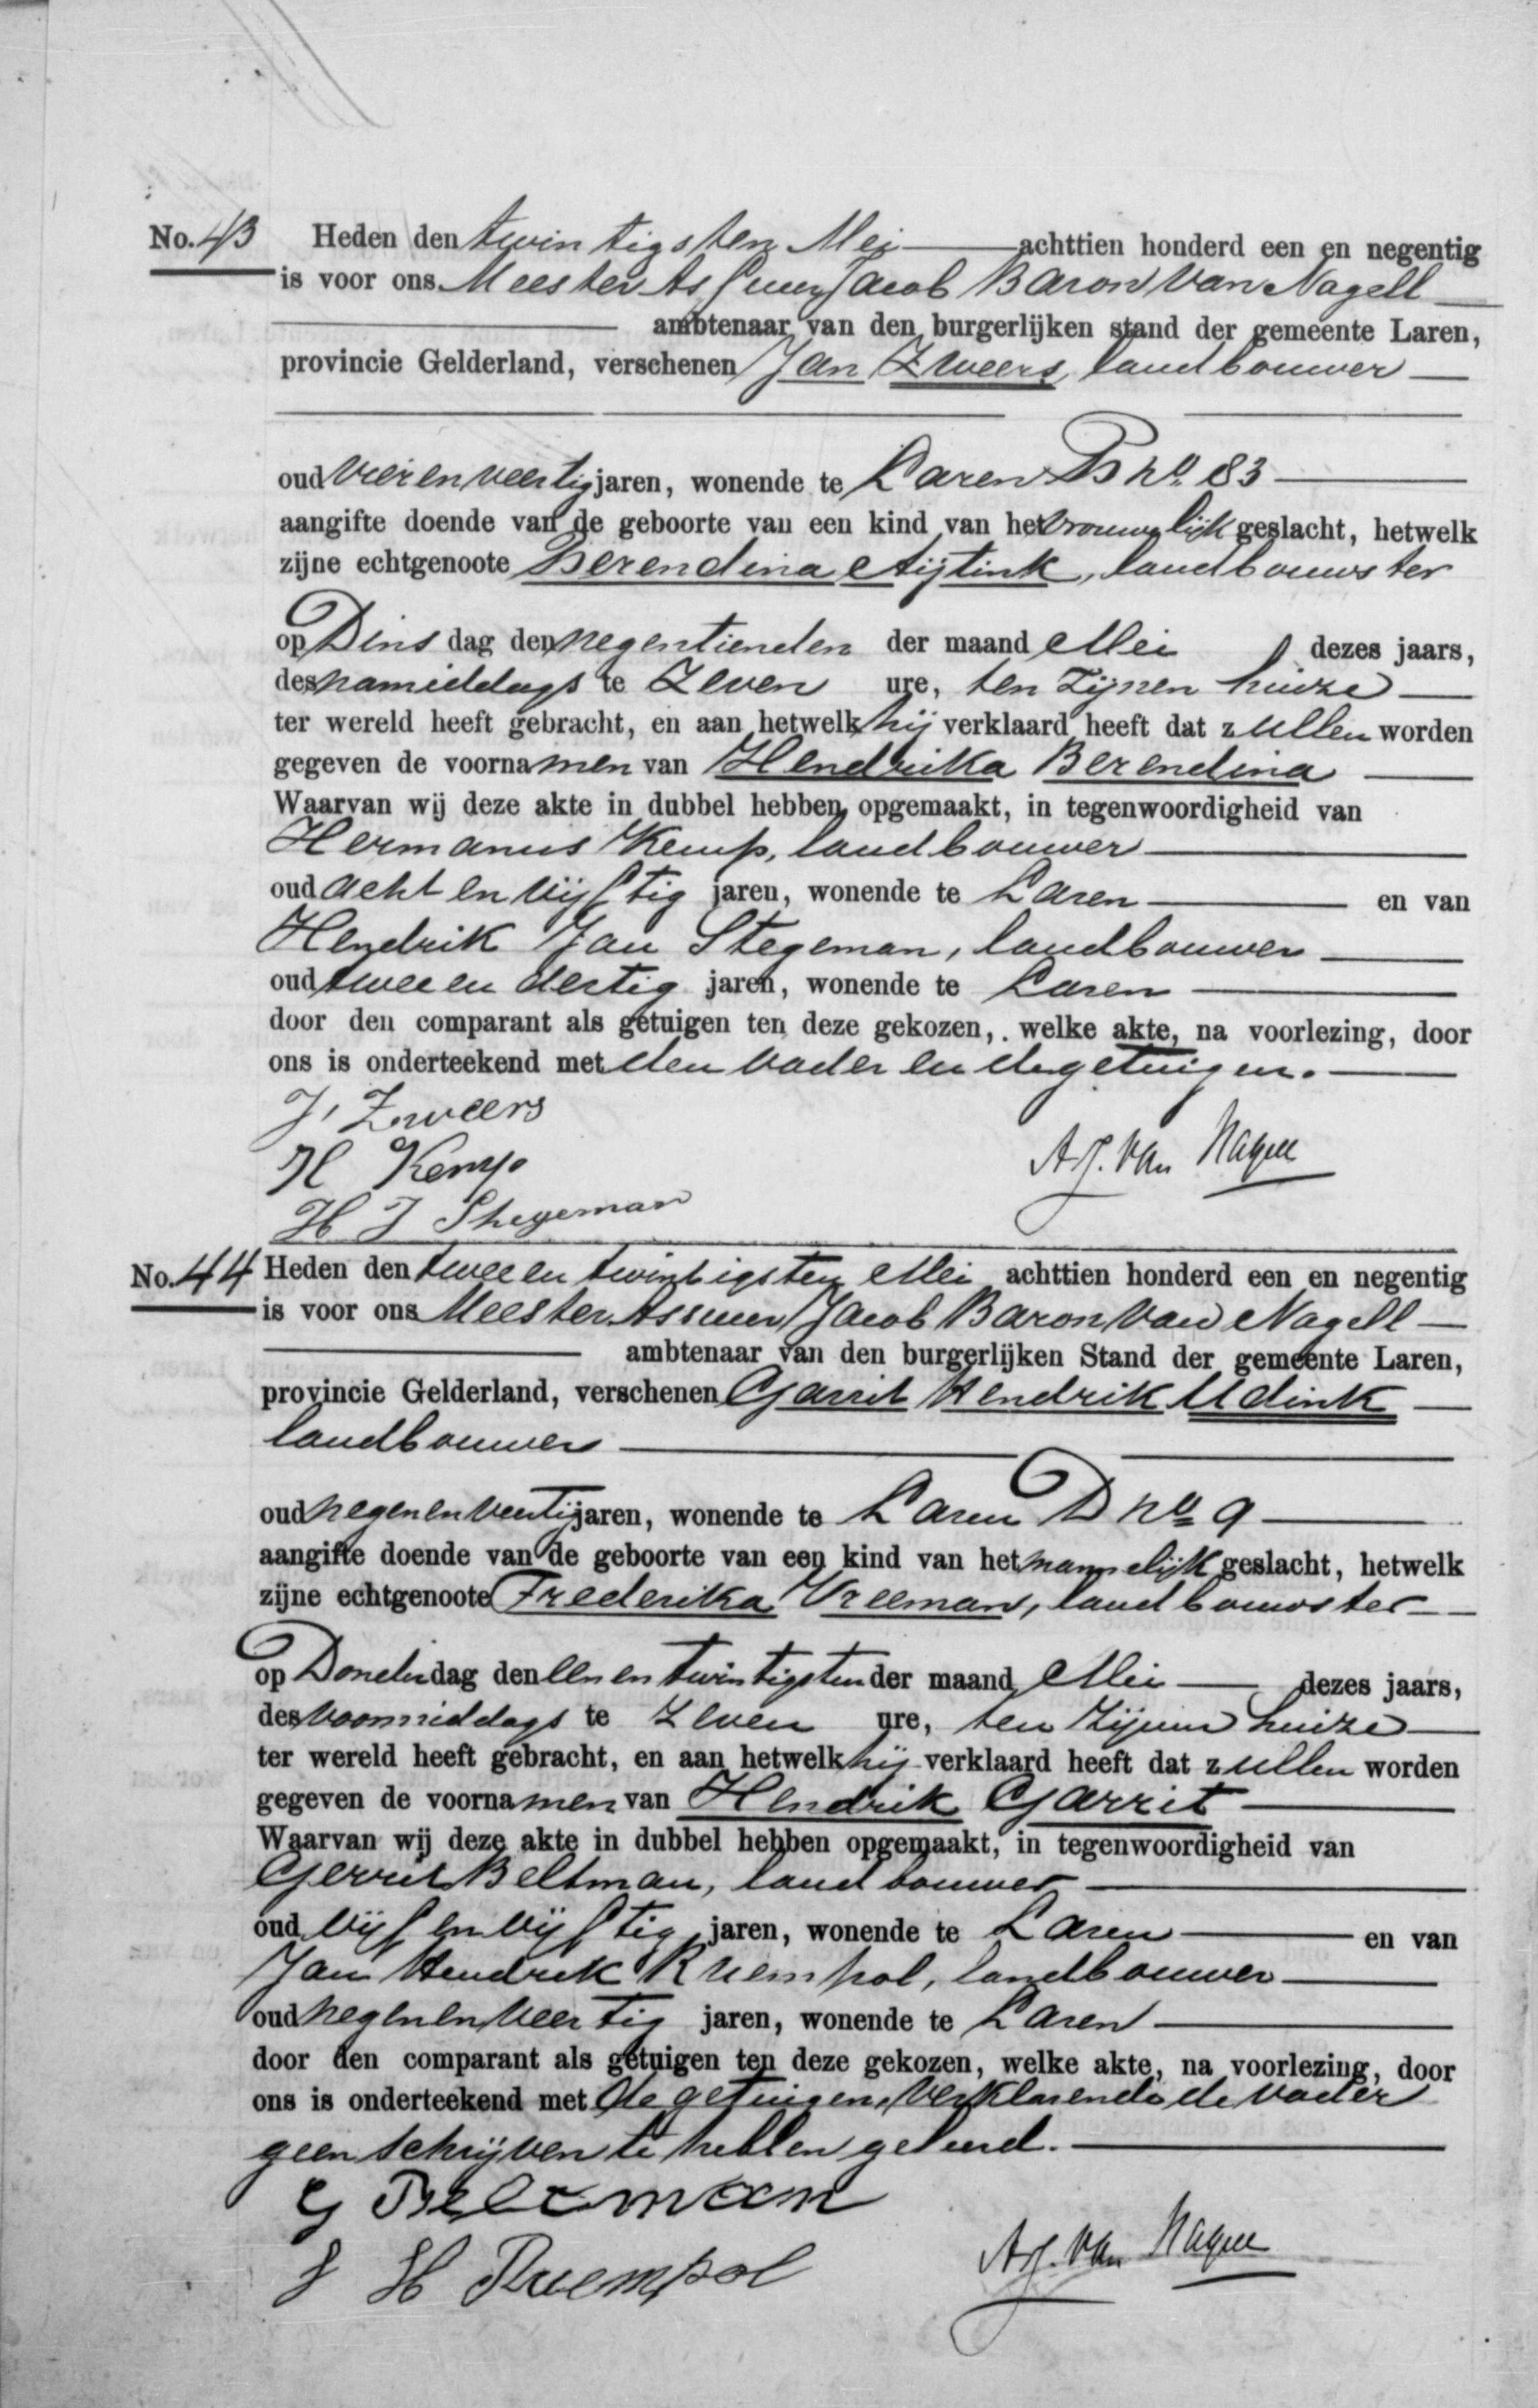 No. 43 Heden den twintigsten Mei achttien honderd een en negentig
is voor ons Meester Assuer Jacob Baron van Nagell
ambtenaar van den burgerlijken stand der gemeente Laren,
provincie Gelderland, verschenen Jan Zweers, landbouwer
oud vier en veertig jaren, wonende te Laren B no. 83
aangifte doende van de geboorte van een kind van het vrouwelijk geslacht, hetwelk
zijne echtgenoote Berendina Nijtink, landbouwster
op Dinsdag den negentienden der maand Mei dezes jaars,
des namiddags te zeven ure, ten zijnen huize
ter wereld heeft gebracht, en aan hetwelk hij verklaard heeft dat zullen worden
gegeven de voornamen van Hendrika Berendina
Waarvan wij deze akte in dubbel hebben opgemaakt, in tegenwoordigheid van
Hermanus Kemp, landbouwer
oud acht en vijftig jaren, wonende te Laren en van
Hendrik Jan Stegeman, landbouwer
oud twee en dertig jaren, wonende te Laren
door den comparant als getuigen ten deze gekozen, welke akte, na voorlezing, door
ons is onderteekend met den vader en de getuigen.
J. Zweers
H Kemp
A.J. van Nagell
H J Stegeman
No. 44 Heden den twee en twintigsten Mei achttien honderd een en negentig
is voor ons Meester Assuer Jacob Baron van Nagell
ambtenaar van den burgerlijken Stand der gemeente Laren,
provincie Gelderland, verschenen Garrit Hendrik Udink
landbouwer
oud negen en veertig jaren, wonende te Laren D no. 9
aangifte doende van de geboorte van een kind van het mannelijk geslacht, hetwelk
zijne echtgenoote Frederika Vreeman, landbouwster
op Donderdag den een en twintigsten der maand Mei dezes jaars,
des voormiddags te zeven ure, ten zijnen huize
ter wereld heeft gebracht, en aan hetwelk hij verklaard heeft dat zullen worden
gegeven de voornamen van Hendrik Garrit
Waarvan wij deze akte in dubbel hebben opgemaakt, in tegenwoordigheid van
Gerrit Beltman, landbouwer
oud vijf en vijftig jaren, wonende te Laren en van
Jan Hendrik Ruempol, landbouwer
oud negen en veertig jaren, wonende te Laren
door den comparant als getuigen ten deze gekozen, welke akte, na voorlezing, door
ons is onderteekend met de getuigen, verklarende de vader
geen schrijven te hebben geleerd.
G Beltman
J H Ruempol
A.J. van Nagell